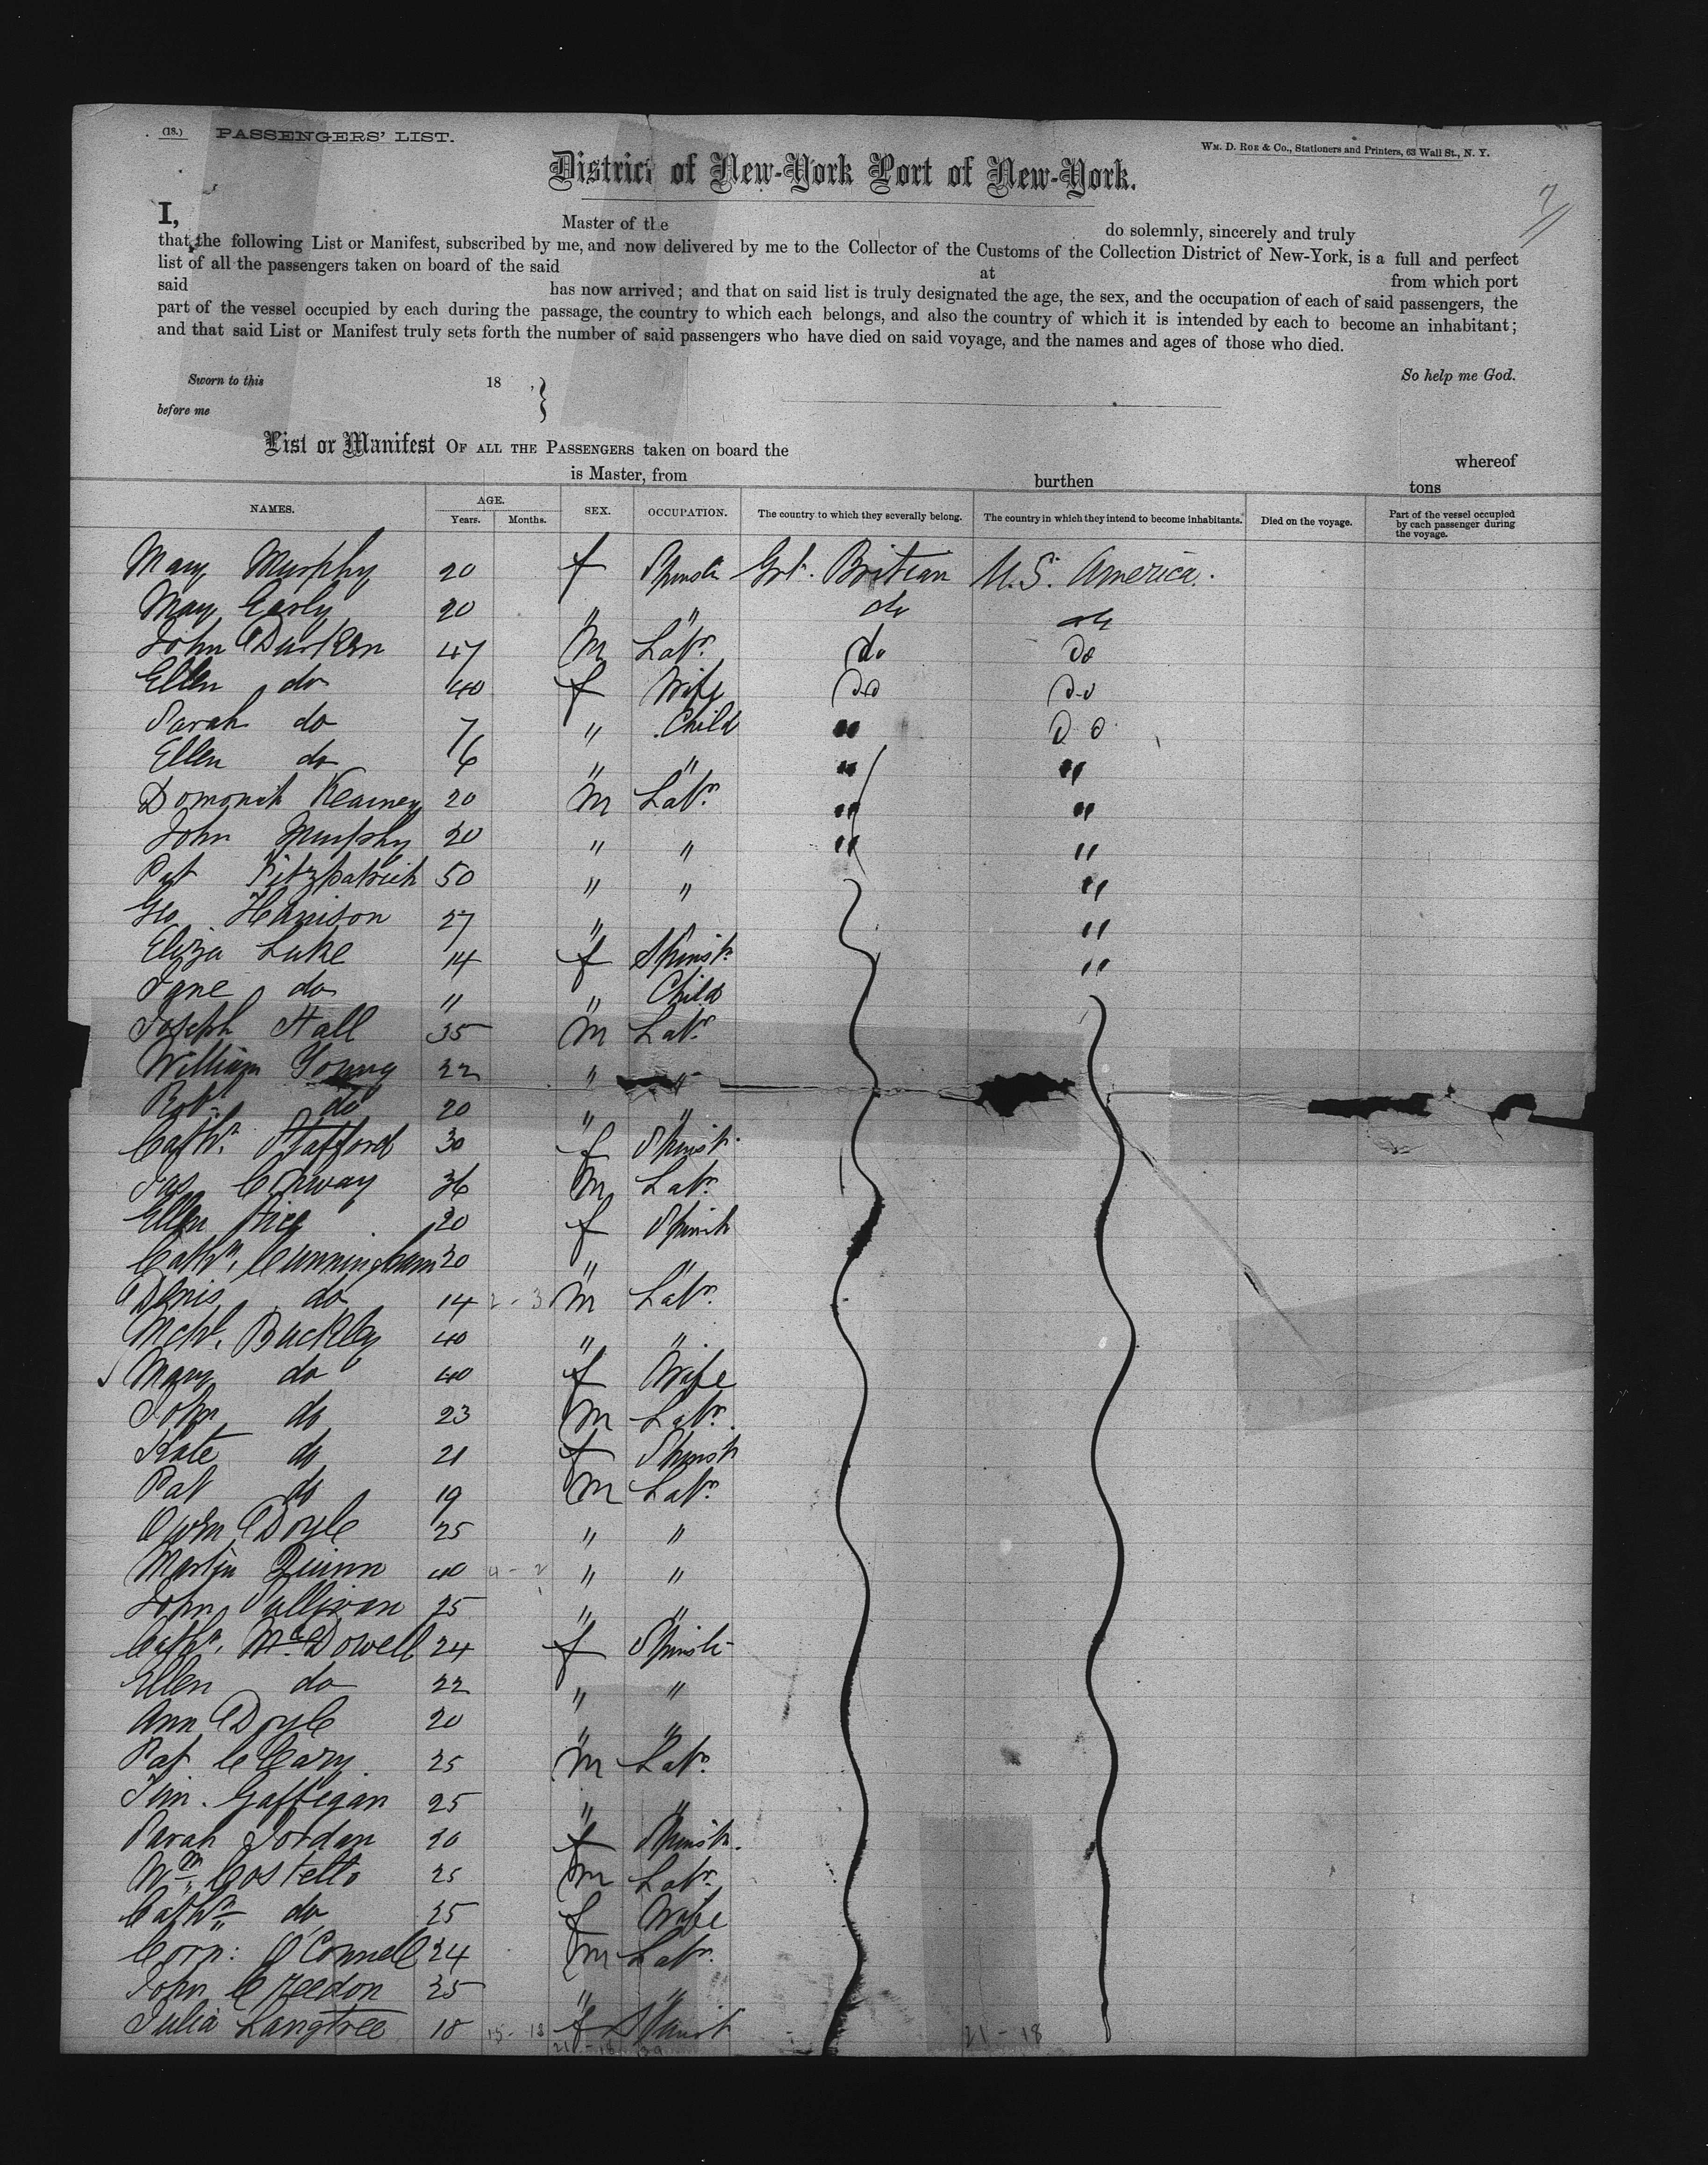 (18.) PASSENGERS' LIST.
WM. D. ROE & CO., Stationers and Printers, 63 Wall St., N. Y.
District of New-York Port of New-York.
7
I, Master of the do solemnly, sincerely and truly
that the following List or Manifest, subscribed by me, and now delivered by me to the Collector of the Customs of the Collection District of New-York, is a full and perfect
list of all the passengers taken on board of the said at from which port
said has now arrived; and that on said list is truly designated the age, the sex, and the occupation of each of said passengers, the
part of the vessel occupied by each during the passage, the country to which each belongs, and also the country of which it is intended by each to become an inhabitant;
and that said List or Manifest truly sets forth the number of said passengers who have died on said voyage, and the names and ages of those who died.
Sworn to this 18 , } So help me God.
before me
List or Manifest OF ALL THE PASSENGERS taken on board the whereof
is Master, from burthen tons
NAMES. AGE. Years. Months. SEX. OCCUPATION. The country to which they severally belong. The country in which they intend to become inhabitants. Died on the voyage. Part of the vessel occupied by each passenger during the voyage.
Mary Murphy 20 f Spinstr Grt. Britian U.S. America.
Mary Early 20 " " do do
John Durken 47 m Labr. do do
Ellen do 40 f Wife do do
Sarah do 7 " Child " do
Ellen do 6 " " " "
Domonik Kearney 20 m Labr. " "
John Murphy 20 " " " "
Pat Fitzpatrick 50 " " "
Geo Harrison 27 " "
Eliza Luke 14 f Spinstr. "
Jane do 11 " Child
Joseph Hall 35 m Labr.
William Young 22 " "
Robt. do 20 " "
Cathn. Stafford 30 f Spinstr.
Jas Conway 36 m Labr.
Ellen 20 f Spinstr
Cathn. Cunningham 20 " "
Denis do 14 2 - 3 m Labr.
Mchl. Buckley 40 " "
Mary do 40 f Wife
John do 23 m Labr.
Kate do 21 f Spinstr
Pat do 19 m Labr.
Owen Doyle 25 " "
Martin Quinn 40 4 - 2 " "
John Sullivan 25 " "
Cathn. McDowell 24 f Spinstr
Ellen do 22 " "
Ann Doyle 20 " "
Pat Cleary. 25 m Labr.
Tim. Gaffegan 25 " "
Sarah Jordan 20 f Spinstr.
Wm. Costello 25 m Labr.
Cathn do 25 f Wife
Corn: O'Connell 24 m Labr.
John Creedon 25 " "
Julia Langtree 18 15 - 18 f Spinstr 21 - 18